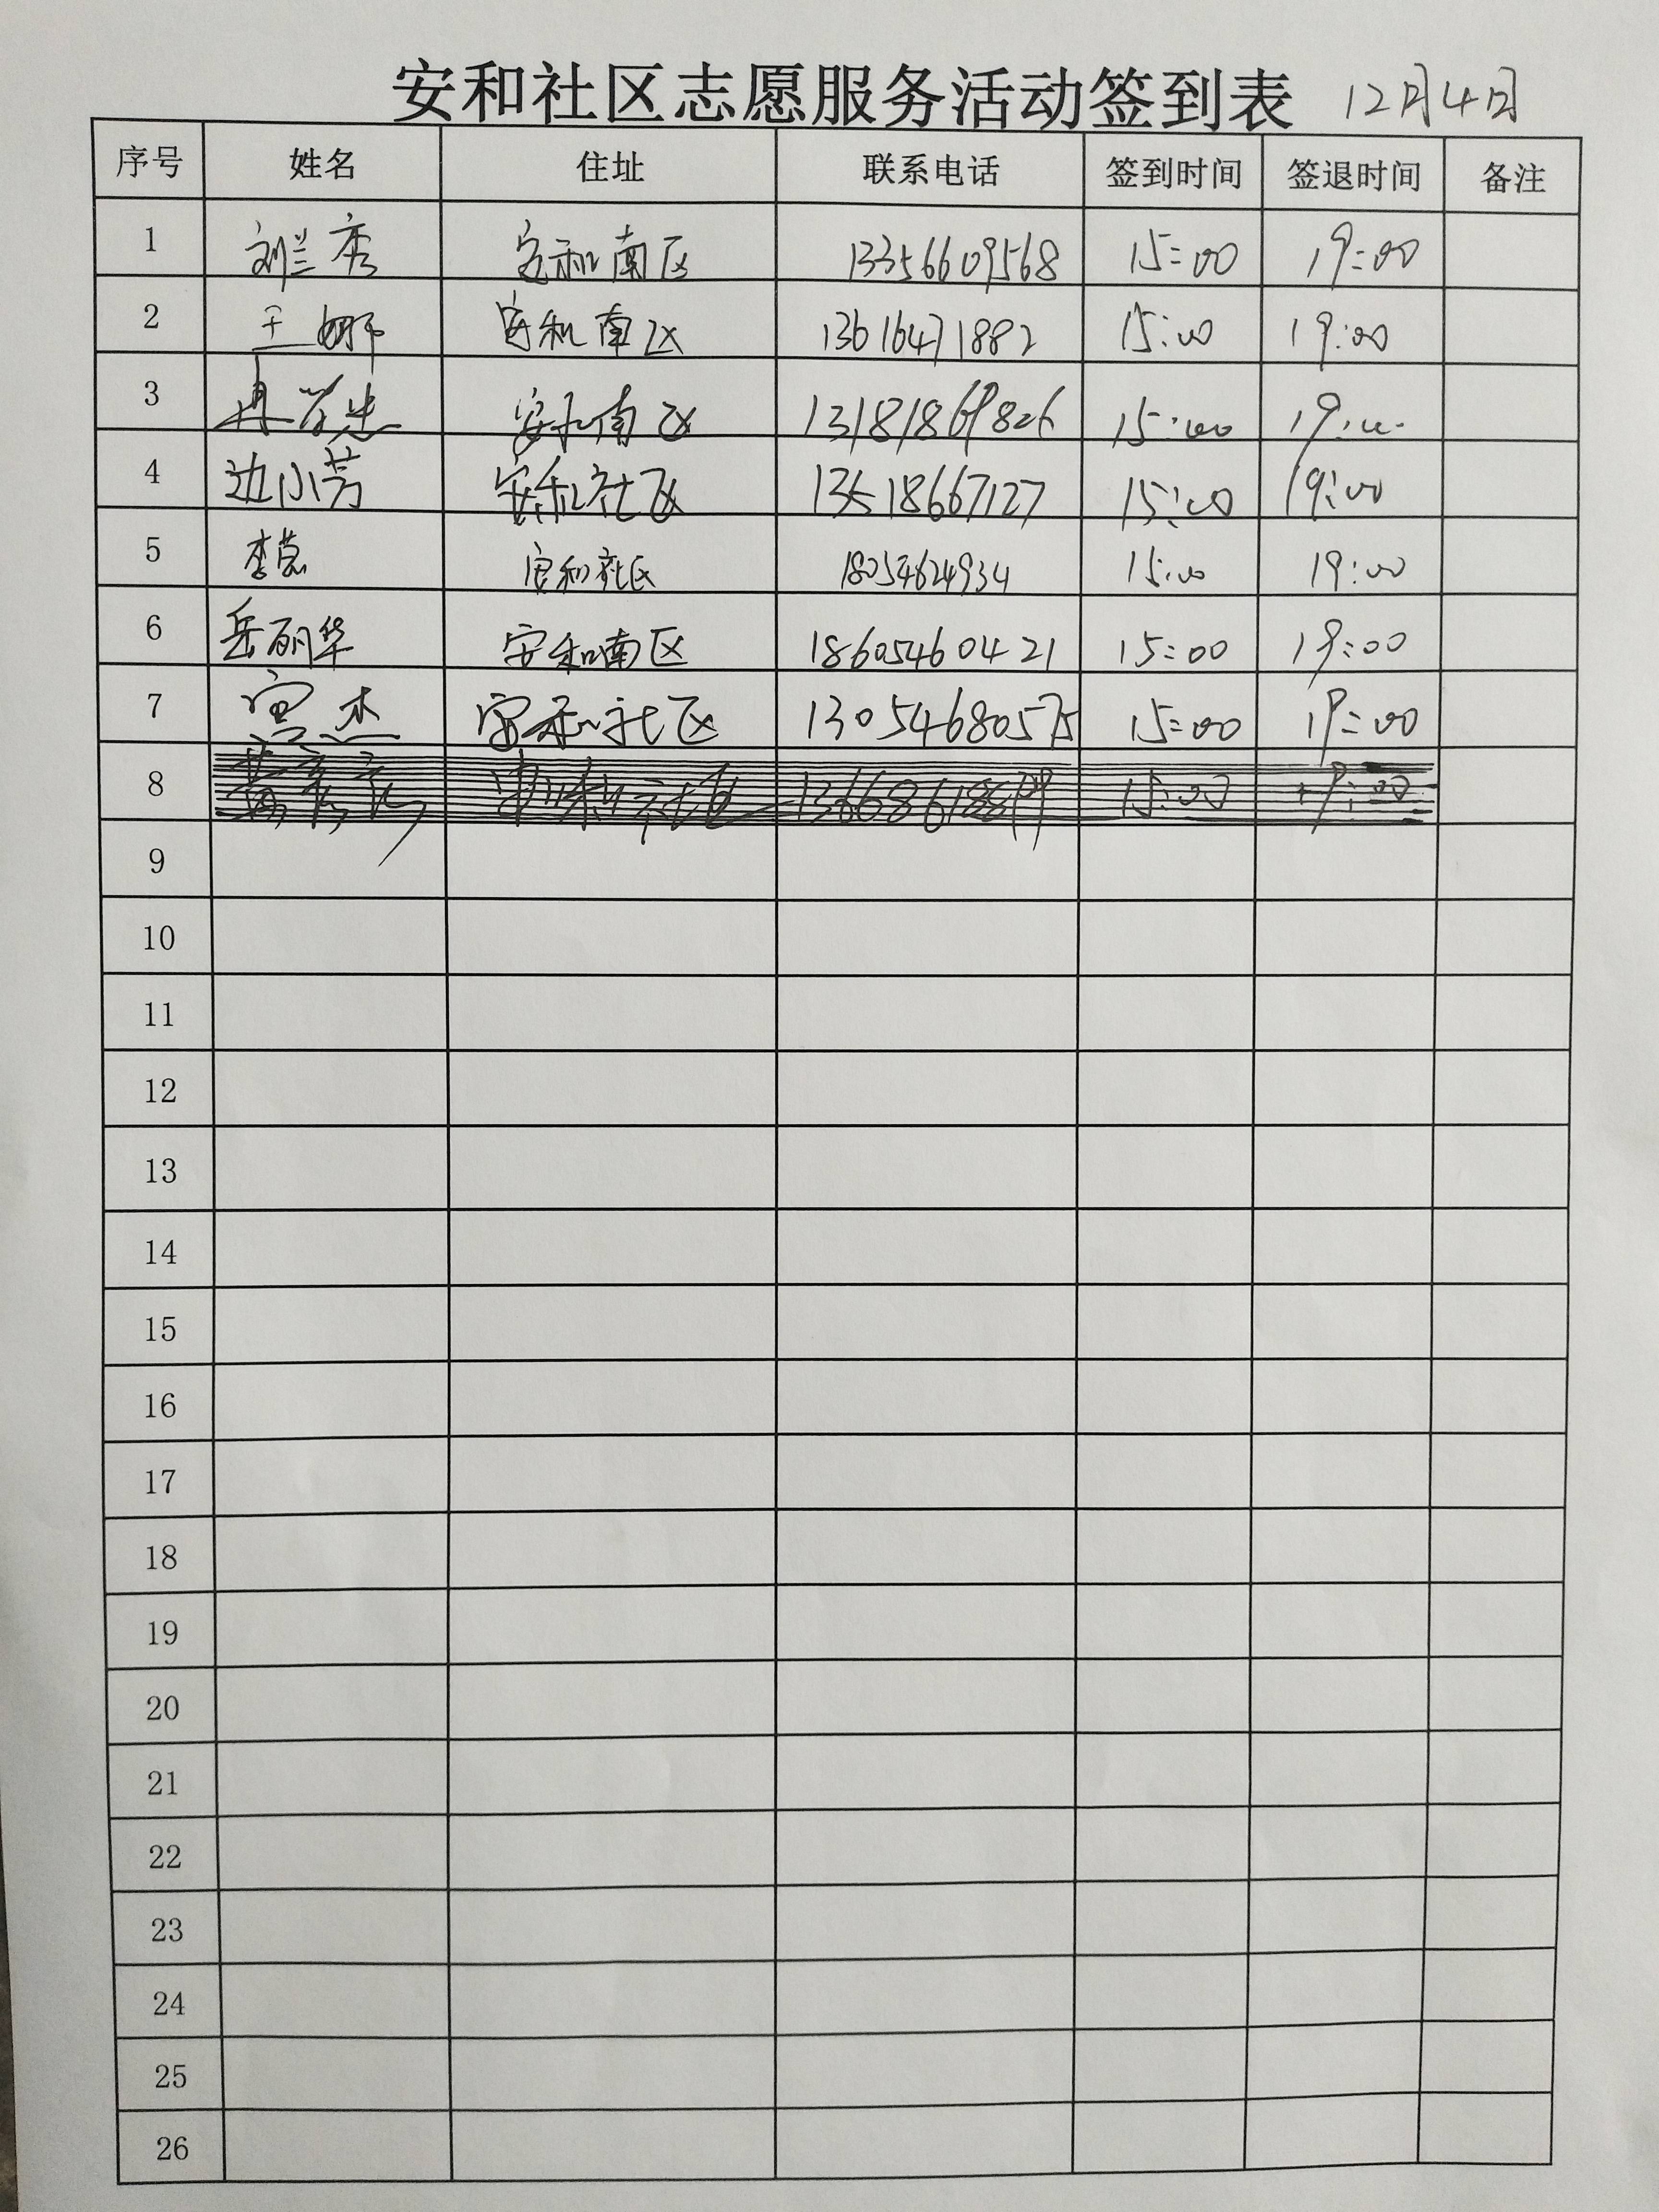 安和社区志愿服务活动签到表 12月4日
序号 姓名 住址 联系电话 签到时间 签退时间 备注
1 刘兰秀 安和南区 13356609568 15:00 19:00
2 王娜 安和南区 13616471882 15:00 19:00
3 安和南区 15:00 19:00
4 边小芳 安和社区 13518667127 15:00 19:00
5 李 安和社区 18054624934 15:00 19:00
6 岳丽华 安和南区 18605460421 15:00 19:00
7 宫杰 安和社区 13054680575 15:00 19:00
8 15:00 19:00
9
10
11
12
13
14
15
16
17
18
19
20
21
22
23
24
25
26